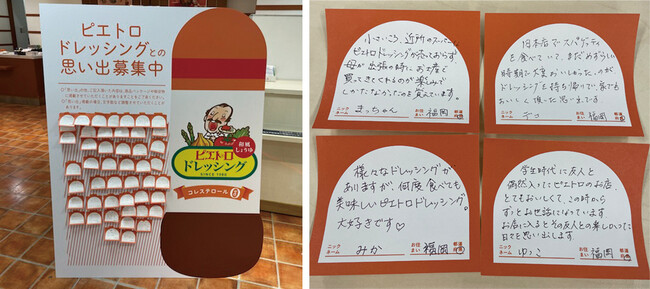 ピエトロ
ドレッシングとの
思い出募集中
和風
しょうゆ
ピエトロ
ドレッシング
SINCE 1980
コレステロール0
小さいころ、近所のスーパーに
ピエトロドレッシングが売っておらず
母が出張の時にお店で
買ってきてくれるのが楽しみで
しかたなかったのを覚えています。
ニックネーム まっちゃん お住まい 福岡 都道府県
旧本店でスパゲッティ
を食べていて、まだめずらしい
時期に大変おいしかったのが
ドレッシングを持ち帰りで、家でも
おいしく頂いた思い出です
ニックネーム お住まい 福岡 都道府県
様々なドレッシングが
ありますが、何度食べても
美味しいピエトロドレッシング。
大好きです♡
ニックネーム みか お住まい 福岡 都道府県
学生時代に友人と
偶然入ったピエトロのお店、
とてもおいしくて、この時から
ずっとお世話になっています
お店に入るとその友人との楽しかった
日々を思い出します
ニックネーム ゆっこ お住まい 福岡 都道府県